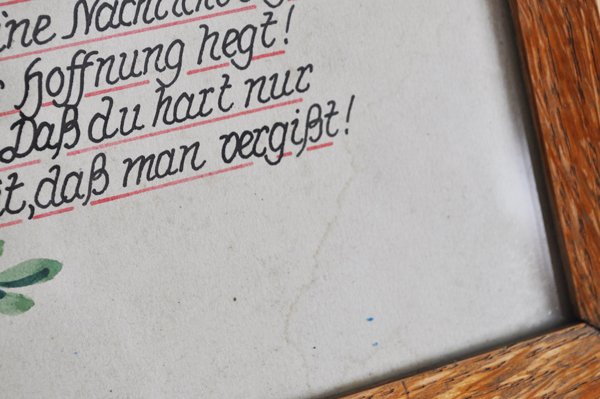 Hoffnung hegt!
Daß du hart nur
daß man vergißt!